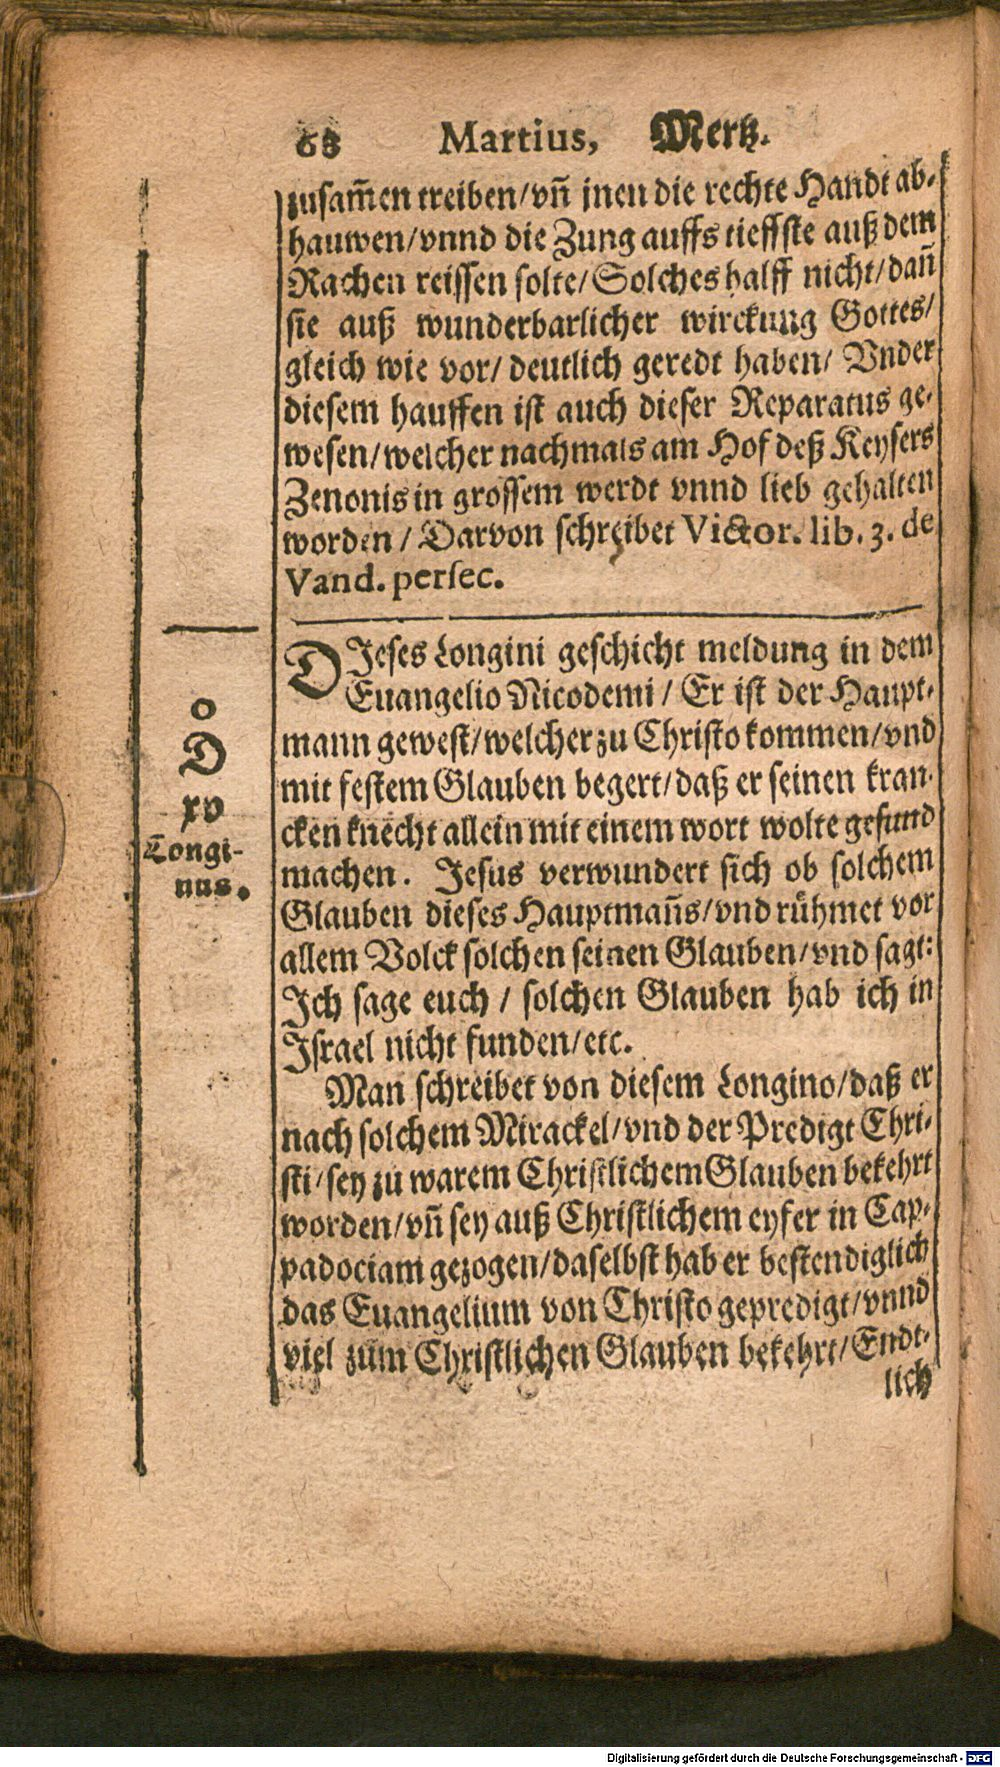 68 Martius, Mertz.
zusam̃en treiben/vñ jnen die rechte Handt ab-
hauwen/vnnd die Zung auffs tieffste auß dem
Rachen reissen solte/Solches halff nicht/dañ
sie auß wunderbarlicher wirckung Gottes/
gleich wie vor/deutlich geredt haben/ Vnder
diesem hauffen ist auch dieser Reparatus ge-
wesen/welcher nachmals am Hof deß Keysers
Zenonis in grossem werdt vnnd lieb gehalten
worden/Darvon schreibet Victor. lib. 3. de
Vand. persec.
o
D
xv
Longi-
nus.
DIeses Longini geschicht meldung in dem
Euangelio Nicodemi/Er ist der Haupt-
mann gewest/welcher zu Christo kommen/vnd
mit festem Glauben begert/daß er seinen kran-
cken knecht allein mit einem wort wolte gesund
machen. Jesus verwundert sich ob solchem
Glauben dieses Hauptmañs/vnd rühmet vor
allem Volck solchen seinen Glauben/vnd sagt:
Ich sage euch/solchen Glauben hab ich in
Israel nicht funden/etc.
Man schreibet von diesem Longino/daß er
nach solchem Mirackel/vnd der Predigt Chri-
sti/sey zu warem Christlichem Glauben bekehrt
worden/vñ sey auß Christlichem eyfer in Cap-
padociam gezogen/daselbst hab er bestendiglich
das Euangelium von Christo gepredigt/vnnd
viel zum Christlichen Glauben bekehrt/Endt-
lich
Digitalisierung gefördert durch die Deutsche Forschungsgemeinschaft - DFG